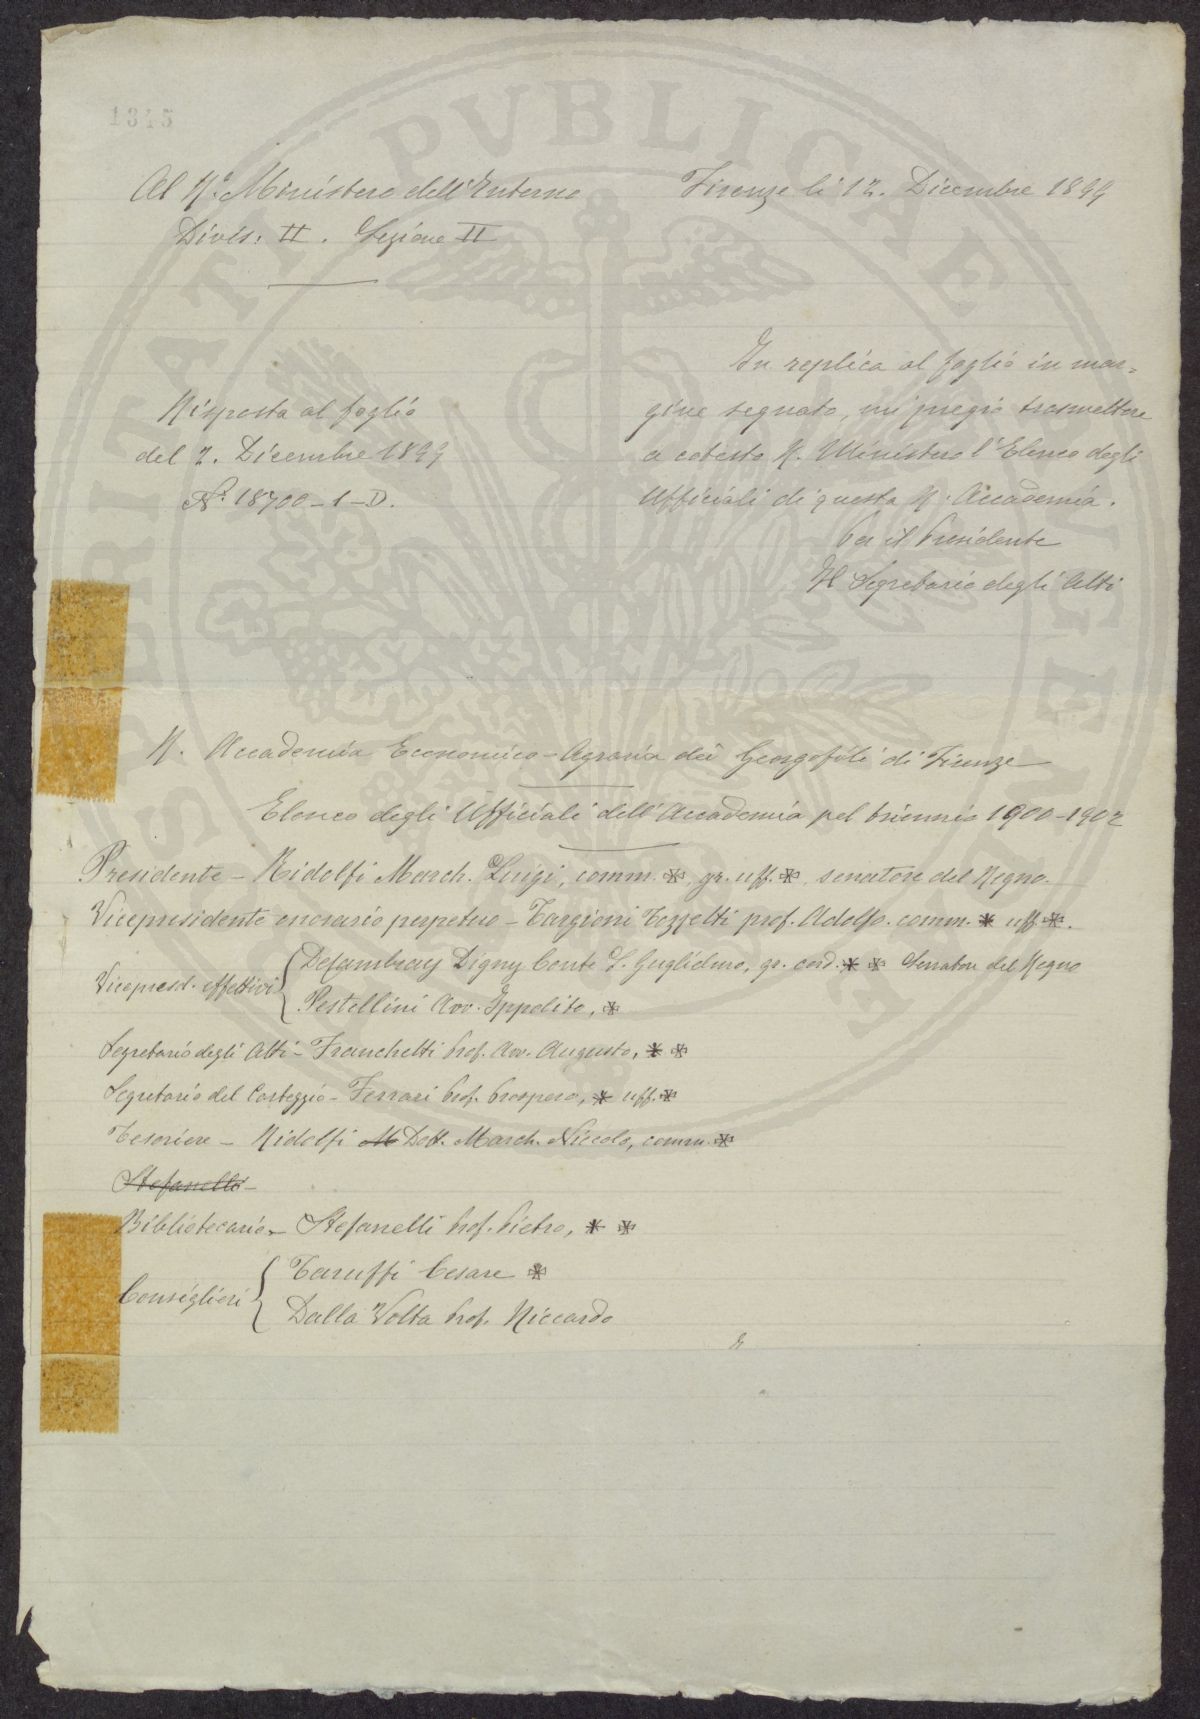 1345
PVBLICAE
PROSPERITATI
Al R.º Ministero dell'Interno
Divis: II. Sezione II
Firenze li 12. Dicembre 1899
Risposta al foglio
del 7. Dicembre 1899
Nº. 18700-1-D.
In replica al foglio in mar=
gine segnato, mi pregio trasmettere
a codesto R. Ministero l'Elenco degli
Ufficiali di questa R. Accademia.
Per il Presidente
Il Segretario degli Atti
R. Accademia Economico-Agraria dei Georgofili di Firenze
Elenco degli Ufficiali dell'Accademia pel biennio 1900-1902
Presidente - Ridolfi March. Luigi, comm. ✲, gr. uff. ✲, senatore del Regno.
Vicepresidente onorario perpetuo - Targioni Tozzetti prof. Adolfo. comm. ✲ uff. ✲.
Vicepresid. effettivi { Decambray Digny Conte L. Guglielmo, gr. cord. ✲ ✲ Senatore del Regno
Pestellini Avv. Ippolito, ✲
Segretario degli Atti - Franchetti Prof. Avv. Augusto, ✲ ✲
Segretario del Carteggio - Ferrari Prof. Prospero, ✲ uff. ✲
Tesoriere - Ridolfi M Dott. March. Niccolò, comm. ✲
Stefanelli -
Bibliotecario - Stefanelli Prof. Pietro, ✲ ✲
Consiglieri { Taruffi Cesare ✲
Dalla Volta Prof. Riccardo